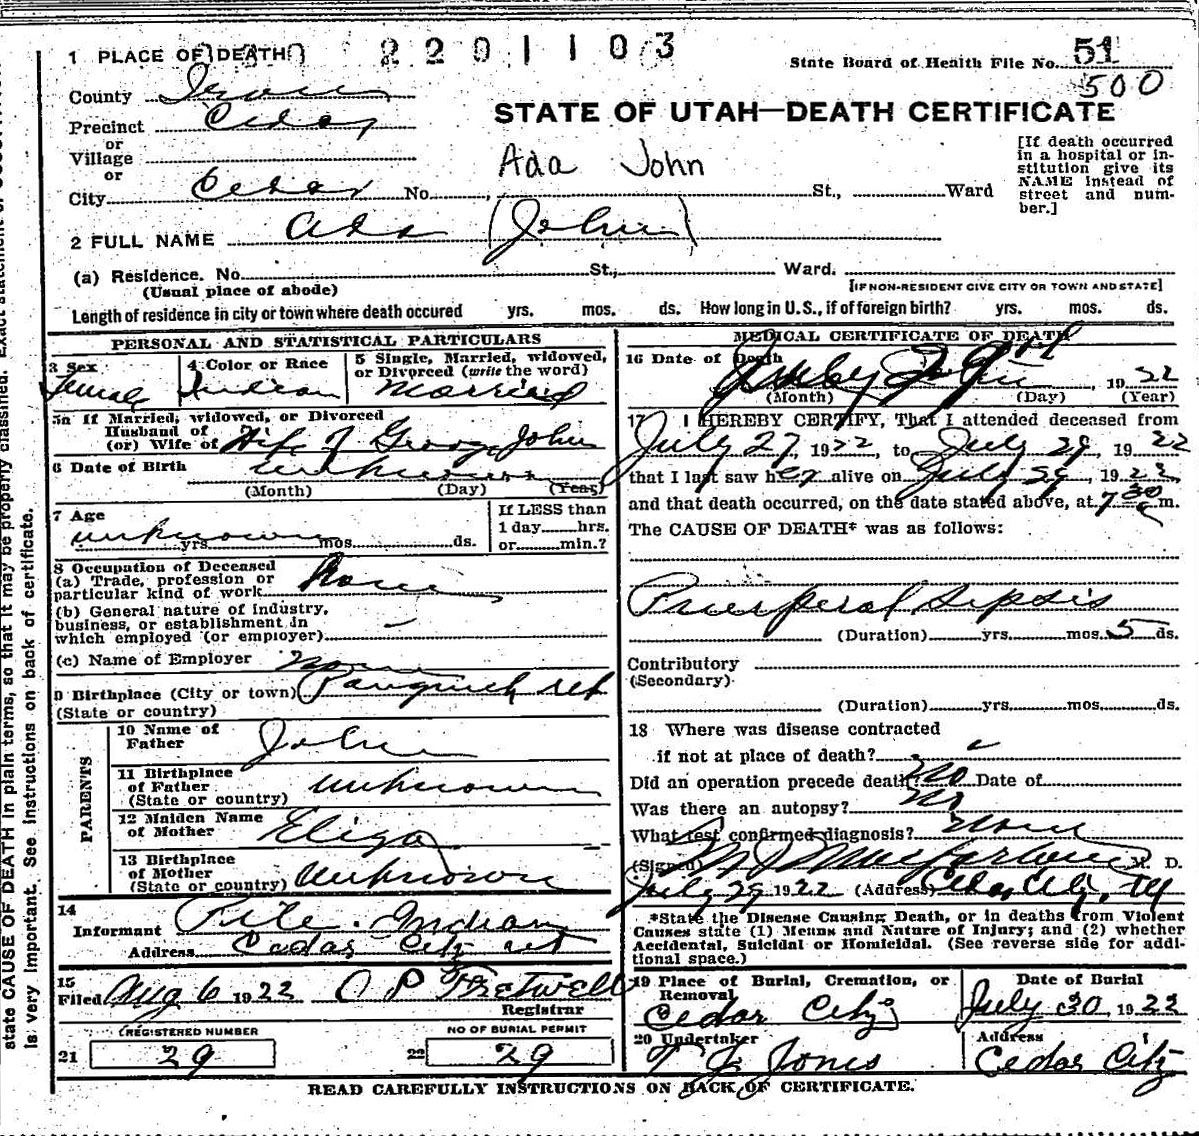 1 PLACE OF DEATH 2201103
State Board of Health File No. 51
500
County Iron
STATE OF UTAH—DEATH CERTIFICATE
Precinct Cedar
or
Village
or
Ada John
City Cedar No. St., Ward
[If death occurred
in a hospital or in-
stitution give its
NAME instead of
street and num-
ber.]
2 FULL NAME Ada (John)
(a) Residence. No. St., Ward.
(Usual place of abode)
[IF NON-RESIDENT GIVE CITY OR TOWN AND STATE]
Length of residence in city or town where death occured yrs. mos. ds. How long in U.S., if of foreign birth? yrs. mos. ds.
PERSONAL AND STATISTICAL PARTICULARS
3 Sex
Female
4 Color or Race
Indian
5 Single, Married, widowed,
or Divorced (write the word)
Married
5a If Married, widowed, or Divorced
Husband of
(or) Wife of Wife of George John
6 Date of Birth unknown
(Month) (Day) (Year)
7 Age
unknown yrs. mos. ds.
If LESS than
1 day hrs.
or min.?
8 Occupation of Deceased
(a) Trade, profession or
particular kind of work None
(b) General nature of industry,
business, or establishment in
which employed (or employer) –
(c) Name of Employer None
9 Birthplace (City or town) Panguich Ut
(State or country)
PARENTS
10 Name of
Father John
11 Birthplace
of Father unknown
(State or country)
12 Maiden Name
of Mother Eliza
13 Birthplace
of Mother unknown
(State or country)
14
Informant Pite Indian
Address Cedar City Ut
15
Filed Aug 6 1922 O P Fretwell
Registrar
(REGISTERED NUMBER NO OF BURIAL PERMIT
21 29 22 29
MEDICAL CERTIFICATE OF DEATH
16 Date of Death
July 29th, 1922
(Month) (Day) (Year)
17 I HEREBY CERTIFY, That I attended deceased from
July 27, 1922, to July 29 1922
that I last saw her alive on July 29, 1922
and that death occurred, on the date stated above, at 7 30 a m.
The CAUSE OF DEATH* was as follows:
Peurperal Sepsis
(Duration) yrs. mos. 5 ds.
Contributory
(Secondary)
(Duration) yrs. mos. ds.
18 Where was disease contracted
if not at place of death?
Did an operation precede death? No Date of
Was there an autopsy? No
What test confirmed diagnosis? None
(Signed) M J Macfarlane M. D.
July 29, 1922 (Address) Cedar City, Ut
*State the Disease Causing Death, or in deaths from Violent
Causes state (1) Means and Nature of Injury; and (2) whether
Accidental, Suicidal or Homicidal. (See reverse side for addi-
tional space.)
19 Place of Burial, Cremation, or
Removal
Cedar City
Date of Burial
July 30, 1922
20 Undertaker
T J Jones
Address
Cedar City
READ CAREFULLY INSTRUCTIONS ON BACK OF CERTIFICATE.
state CAUSE OF DEATH in plain terms, so that it may be properly classified. Exact statement of
is very important. See instructions on back of certificate.